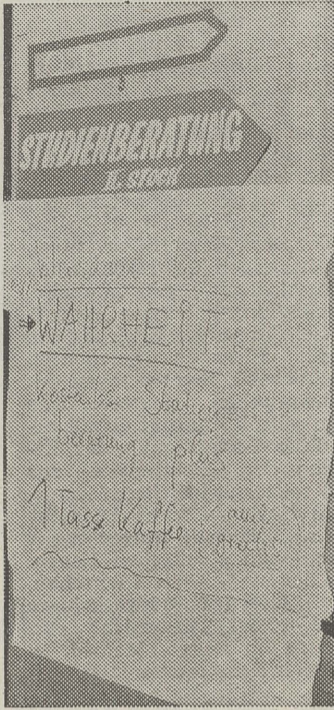 STUDIENBERATUNG
II. STOCK
WAHRHEIT
Kostenlose Studien
beratung plus
1 Tasse Kaffee (auch
gratis)